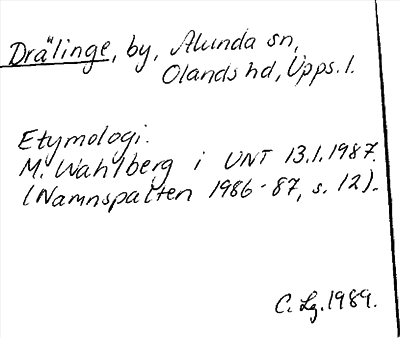 Drälinge, by, Alunda sn,
Olands hd, Upps. l.
Etymologi.
M. Wahlberg i UNT 13.1.1987.
(Namnspalten 1986-87, s. 12).
C. Lg. 1989.